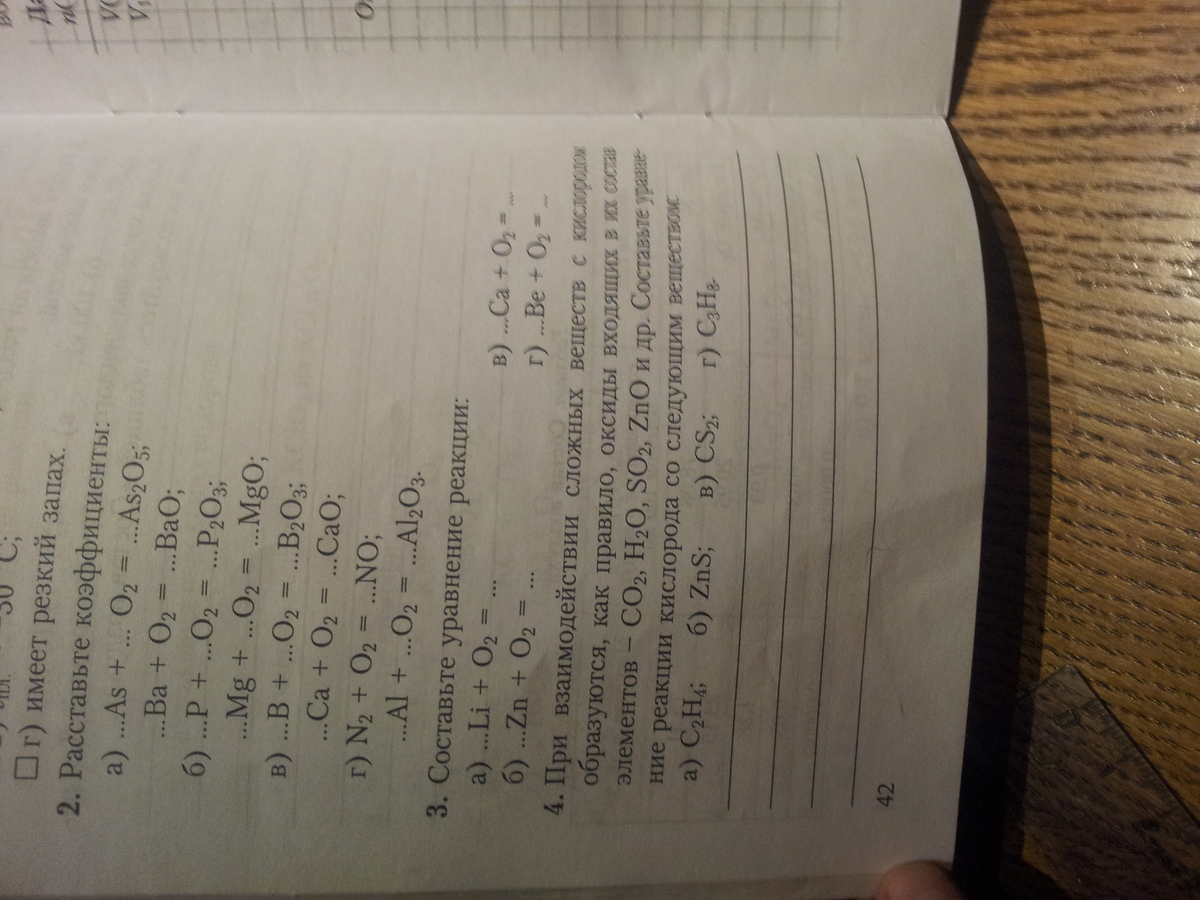 □ г) имеет резкий запах.
2. Расставьте коэффициенты:
а) ...As + ... O₂ = ...As₂O₅;
...Ba + O₂ = ...BaO;
б) ...P + ...O₂ = ...P₂O₃;
...Mg + ...O₂ = ...MgO;
в) ...B + ...O₂ = ...B₂O₃;
...Ca + O₂ = ...CaO;
г) N₂ + O₂ = ...NO;
...Al + ...O₂ = ...Al₂O₃.
3. Составьте уравнение реакции:
а) ...Li + O₂ = ... в) ...Ca + O₂ = ...
б) ...Zn + O₂ = ... г) ...Be + O₂ = ...
4. При взаимодействии сложных веществ с кислородом
образуются, как правило, оксиды входящих в их состав
элементов – CO₂, H₂O, SO₂, ZnO и др. Составьте уравне-
ние реакции кислорода со следующим веществом:
а) C₂H₄; б) ZnS; в) CS₂; г) C₃H₈.
42